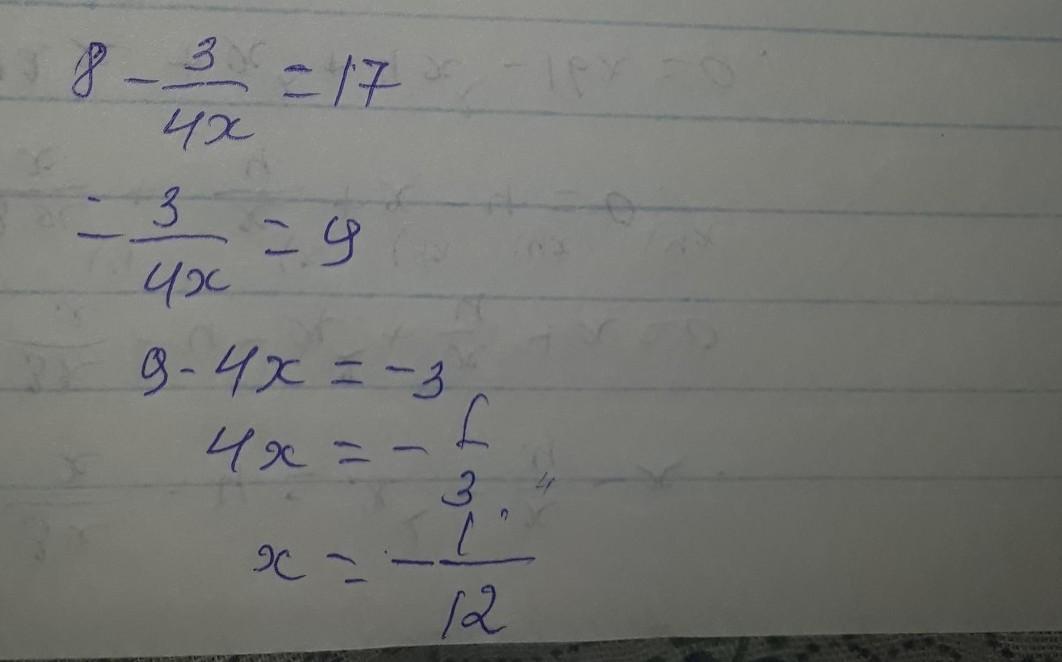 8 - 3/4x = 17
- 3/4x = 9
9 - 4x = -3
4x = - 1/3
x = - 1/12